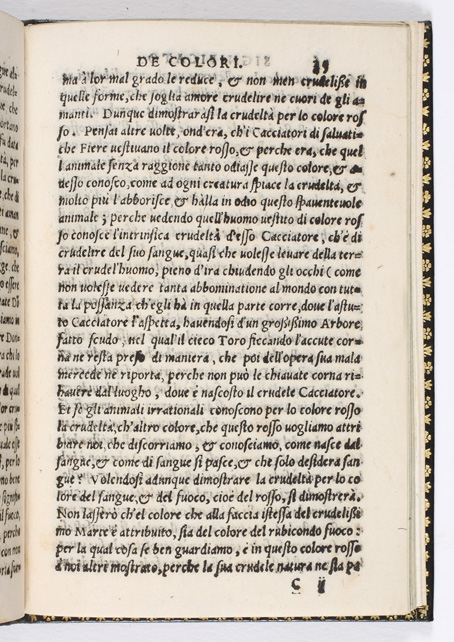 DE COLORI. 35
ma à lor mal grado le reduce, & non men crudelisse in
quelle forme, che soglia amore crudelire ne cuori de gli a-
manti. Dunque dimostrarasi la crudeltà per lo colore ros
so. Pensai altre volte, ond'era, ch'i Cacciatori di saluati-
che Fiere uestiuano il colore rosso, & perche era, che quel
l'animale senza raggione tanto odiasse questo colore, & a-
desso conosco, come ad ogni creatura spiace la crudeltà, &
molto più l'abborisce, & hàlla in odio questo spauenteuole
animale; perche uedendo quell'huomo uestito di colore ros
so conosce l'intrinsica crudeltà d'esso Cacciatore, ch'è di
crudelire del suo sangue, quasi che volesse leuare della ter-
ra il crudel'huomo, pieno d'ira chiudendo gli occhi (come
non volesse uedere tanta abbominatione al mondo con tut-
ta la possanza ch'egli hà in quella parte corre, doue l'astu-
to Cacciatore l'aspetta, hauendosi d'un grossissimo Arbore
fatto scudo; nel qual'il cieco Toro ficcando l'accute cor-
na ne resta preso di maniera, che poi dell'opera sua mala
mercede ne riporta, perche non può le chiauate corna ri-
hauere dal luogho, doue è nascosto il crudele Cacciatore.
Et se gli animali irrationali conoscono per lo colore rosso
la crudeltà, ch'altro colore, che questo rosso uogliamo attri
buire noi, che discorriamo, & conosciamo, come nasce dal
sangue, & come di sangue si pasce, & che solo desidera san
gue? Volendosi adunque dimostrare la crudeltà per lo co
lore del sangue, & del fuoco, cioè del rosso, si dimostrerà.
Non lasserò ch'el colore che alla faccia istessa del crudelissi
mo Marte è attribuito, sia del colore del rubicondo fuoco:
per la qual cosa se ben guardiamo, è in questo colore rosso
a noi altri mostrato, perche la sua crudele natura ne stia pa
C ij